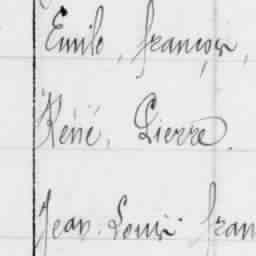 Emile, françois,
Réné, Pierre.
Jean. Louis. fran